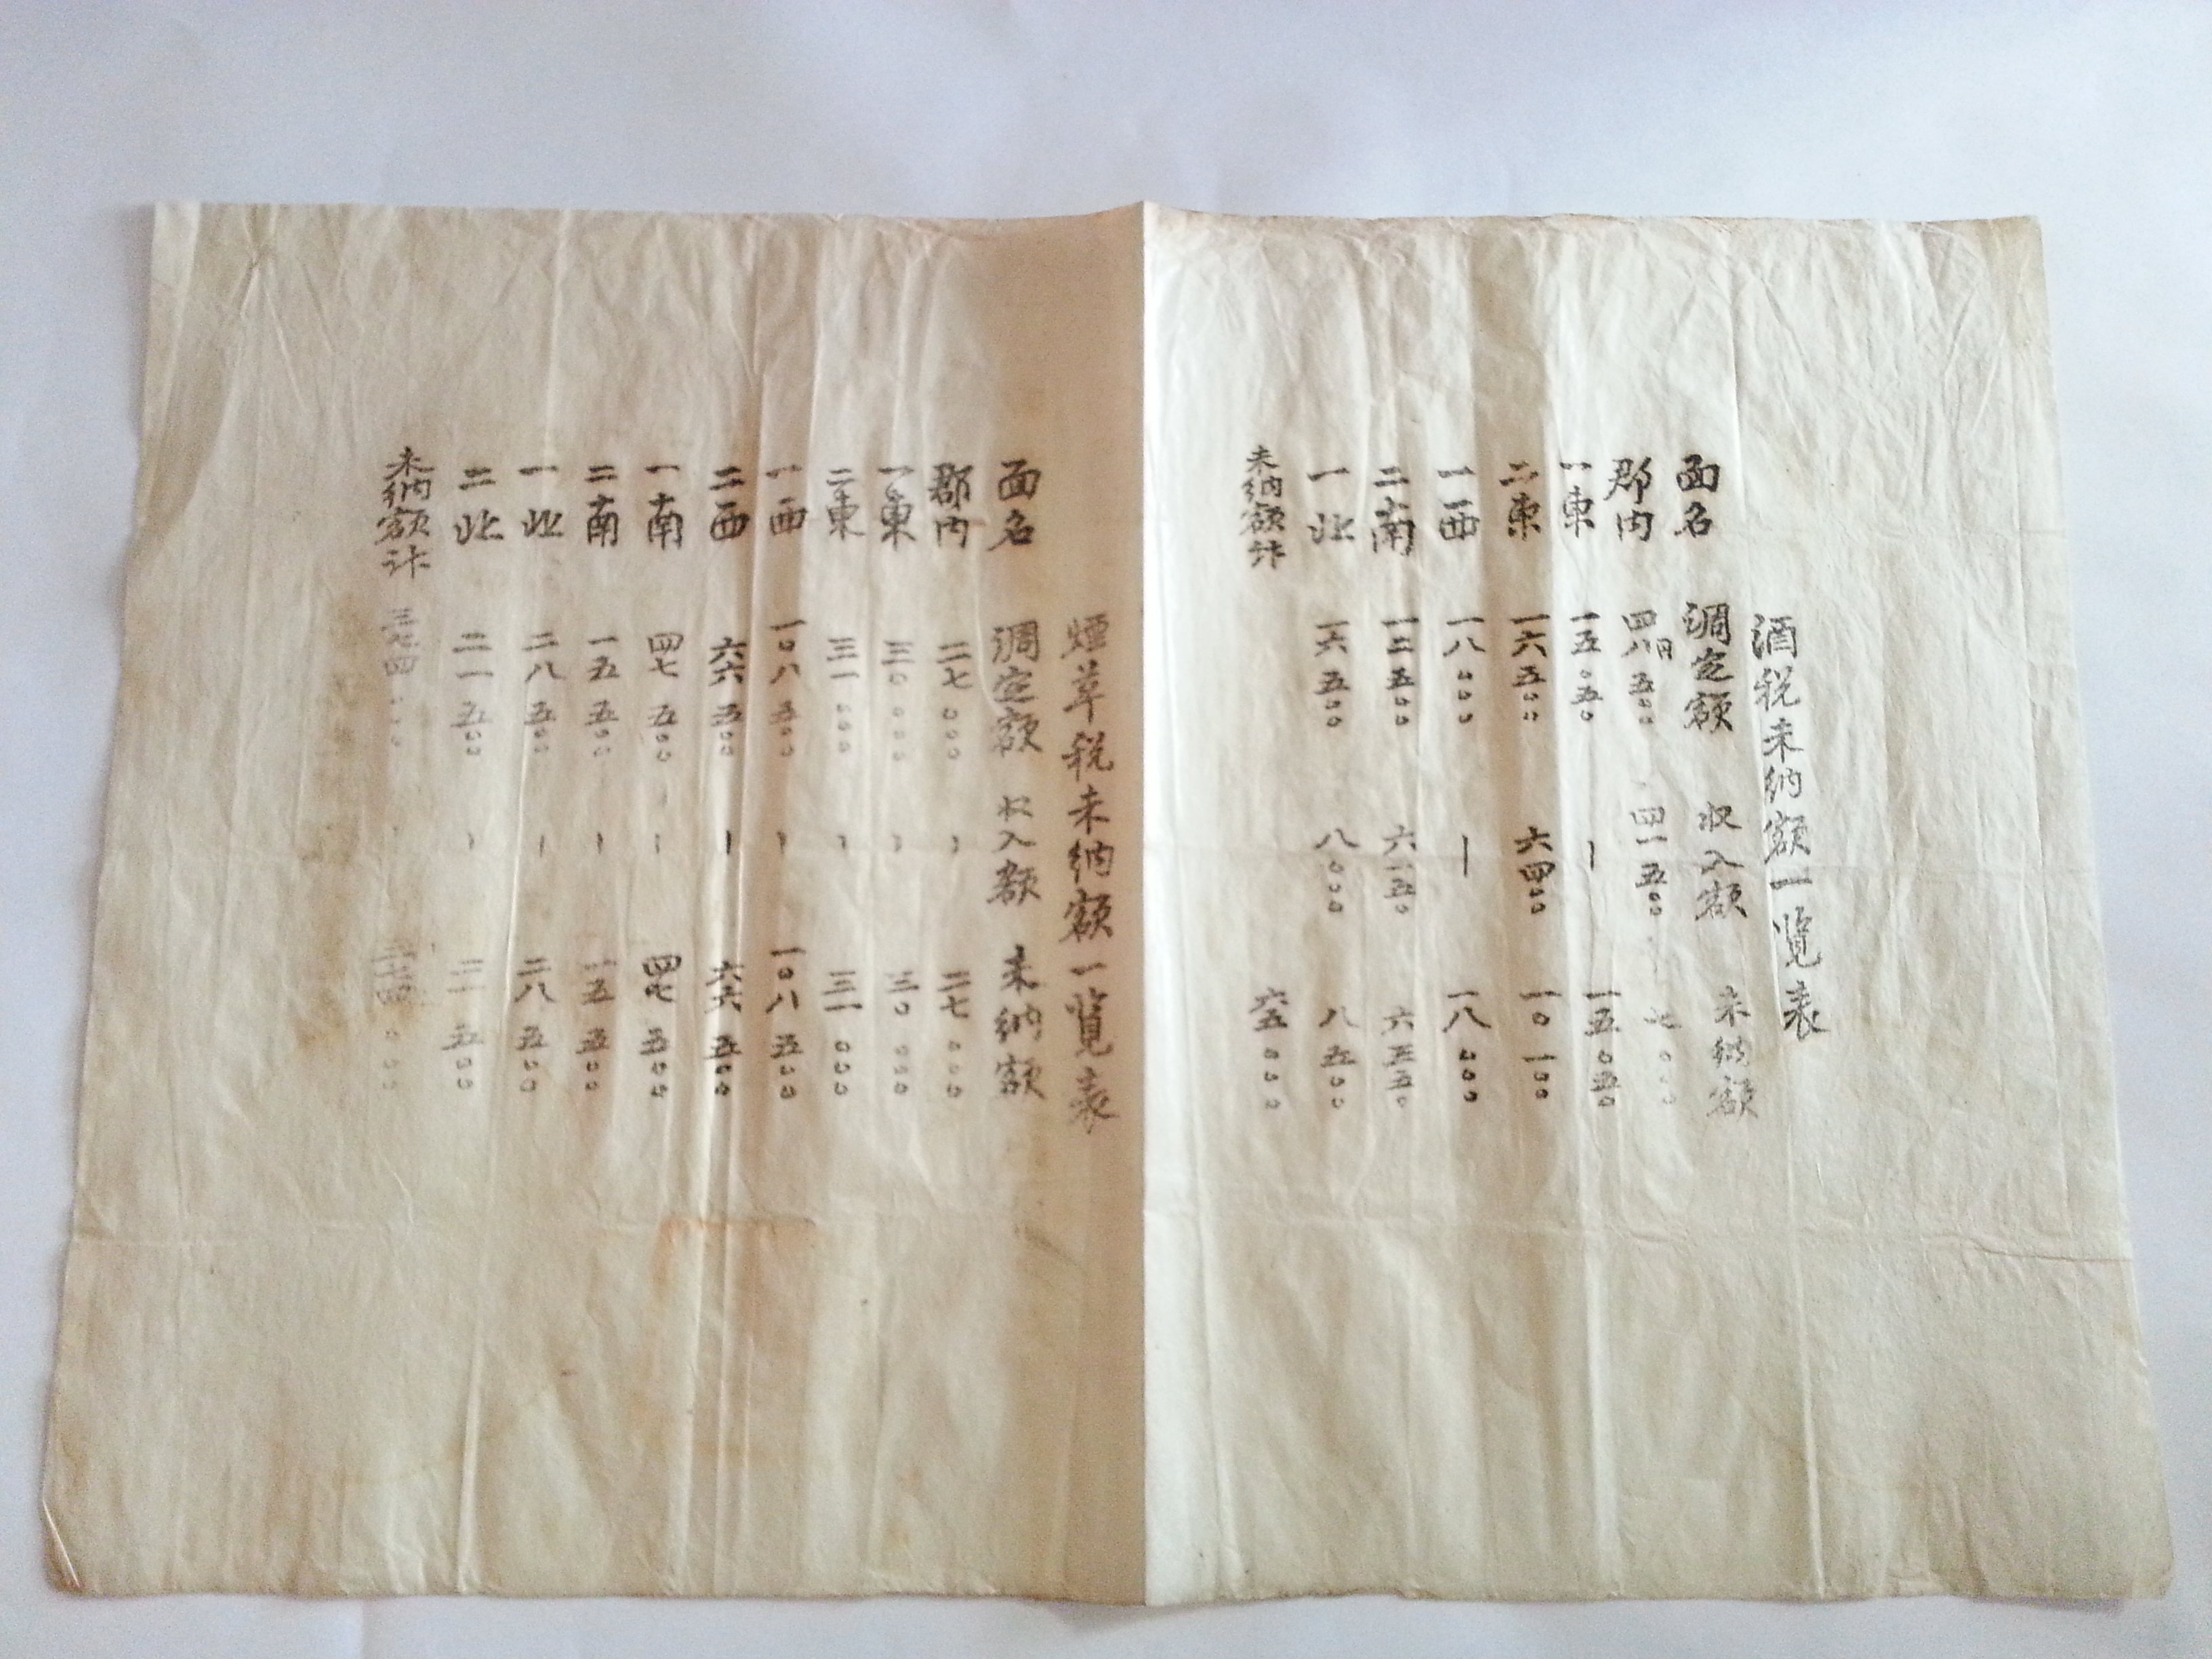 酒税未納額一覧表
面名 調定額 收入額 未納額
郡内 四八円五〇〇 四一五〇〇 七〇〇〇
一東 一五〇五〇 一 一五〇五〇
二東 一六五〇〇 六四〇〇 一〇一〇〇
一西 一八〇〇〇 一 一八〇〇〇
二南 一二五〇〇 六一五〇 六三五〇
一北 一六五〇〇 八〇〇〇 八五〇〇
未納額計 六五〇〇〇
煙草税未納額一覧表
面名 調定額 收入額 未納額
郡内 二七〇〇〇 一 二七〇〇〇
一東 三〇〇〇〇 一 三〇〇〇〇
二東 三一〇〇〇 一 三一〇〇〇
一西 一〇八五〇〇 一 一〇八五〇〇
二西 六六五〇〇 一 六六五〇〇
一南 四七五〇〇 一 四七五〇〇
二南 一五五〇〇 一 一五五〇〇
一北 二八五〇〇 一 二八五〇〇
二北 二一五〇〇 一 二一五〇〇
未納額計 三七四〇〇〇 一 三七四〇〇〇